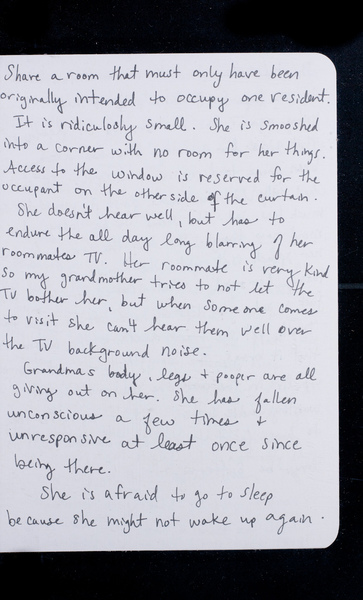 Share a room that must only have been
originally intended to occupy one resident.
It is ridiculosly small. She is smooshed
into a corner with no room for her things.
Access to the window is reserved for the
occupant on the other side of the curtain.
She doesn't hear well, but has to
endure the all day long blarring of her
roommates TV. Her roommate is very kind
so my grandmother tries to not let the
TV bother her, but when someone comes
to visit she can't hear them well over
the TV background noise.
Grandmas body, legs + pooper are all
giving out on her. She has fallen
unconscious a few times +
unresponsive at least once since
being there.
She is afraid to go to sleep
because she might not wake up again.